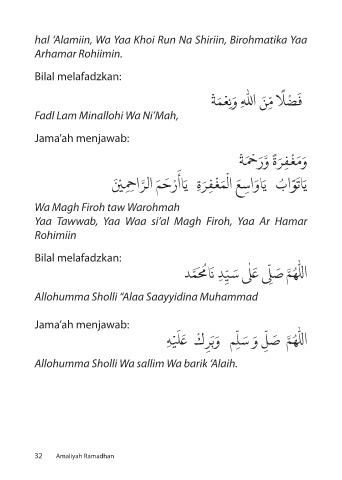 hal ‘Alamiin, Wa Yaa Khoi Run Na Shiriin, Birohmatika Yaa
Arhamar Rohiimin.
Bilal melafadzkan:
فَضْلًا مِّنَ اللهِ وَنِعْمَةْ
Fadl Lam Minallohi Wa Ni’Mah,
Jama’ah menjawab:
وَمَغْفِرَةً وَّرَحْمَةْ
يَاتَوَّابُ يَاوَاسِعَ الْمَغْفِرَةِ يَاأَرْحَمَ الرَّاحِمِيْنَ
Wa Magh Firoh taw Warohmah
Yaa Tawwab, Yaa Waa si’al Magh Firoh, Yaa Ar Hamar
Rohimiin
Bilal melafadzkan:
اللّٰهُمَّ صَلِّى عَلٰى سَيِّدِ نَامُحَمَّد
Allohumma Sholli “Alaa Saayyidina Muhammad
Jama’ah menjawab:
اللّٰهُمَّ صَلِّ وَ سَلِّم وَبَرِكْ عَلَيْهِ
Allohumma Sholli Wa sallim Wa barik ‘Alaih.
32 Amaliyah Ramadhan